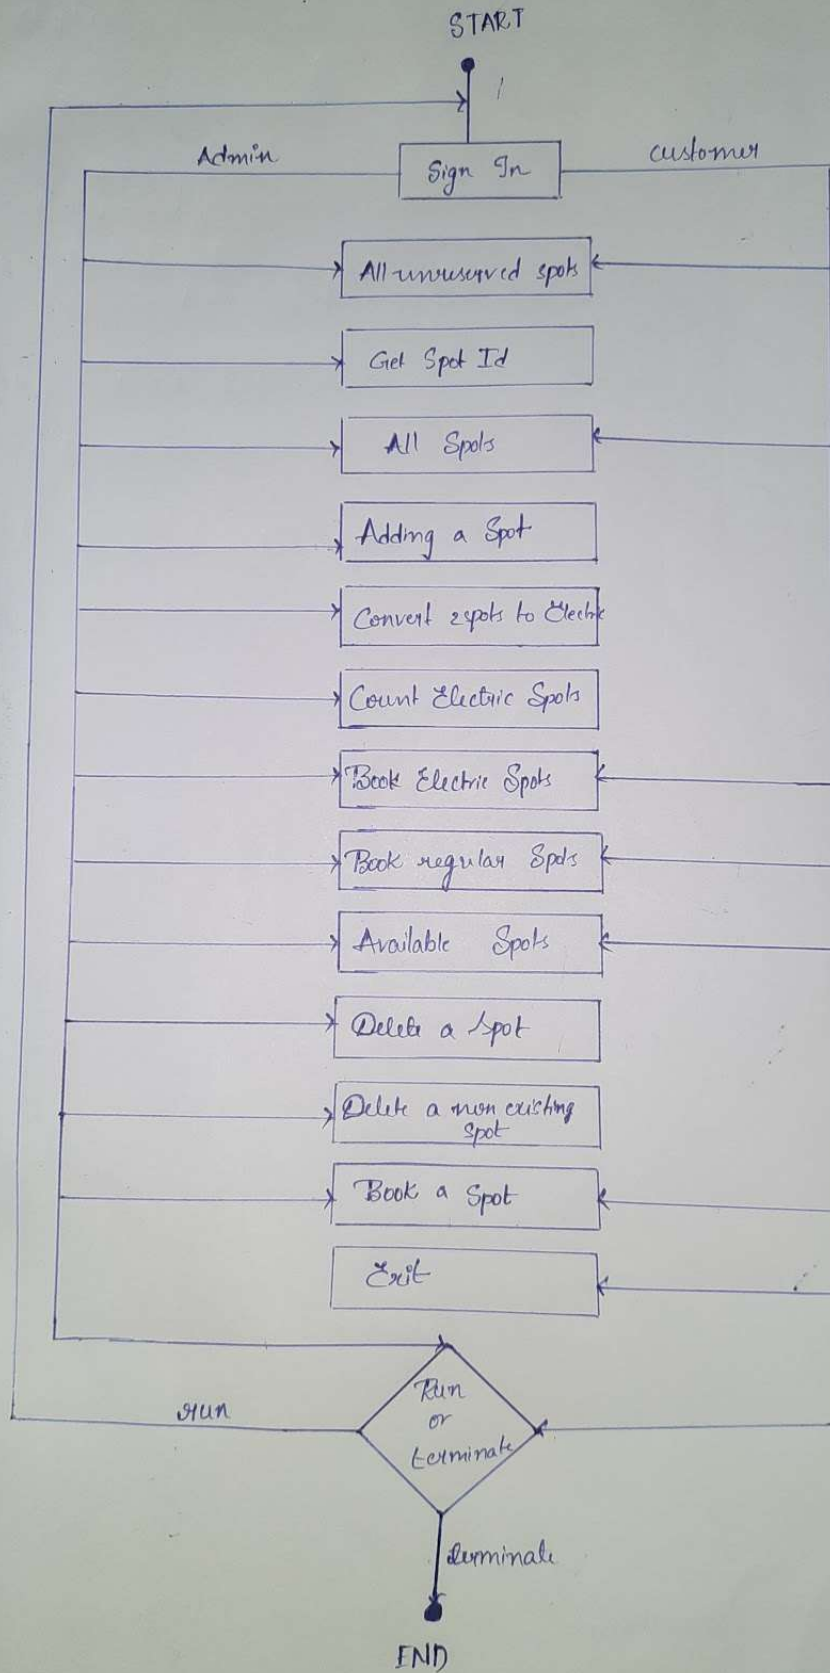 START
Admin
Sign In
customer
All unreserved spots
Get Spot Id
All Spots
Adding a Spot
Convert 2spots to Electric
Count Electric Spots
Book Electric Spots
Book regular Spots
Available Spots
Delete a Spot
Delete a non existing
spot
Book a Spot
Exit
Run
or
terminate
run
terminate
END